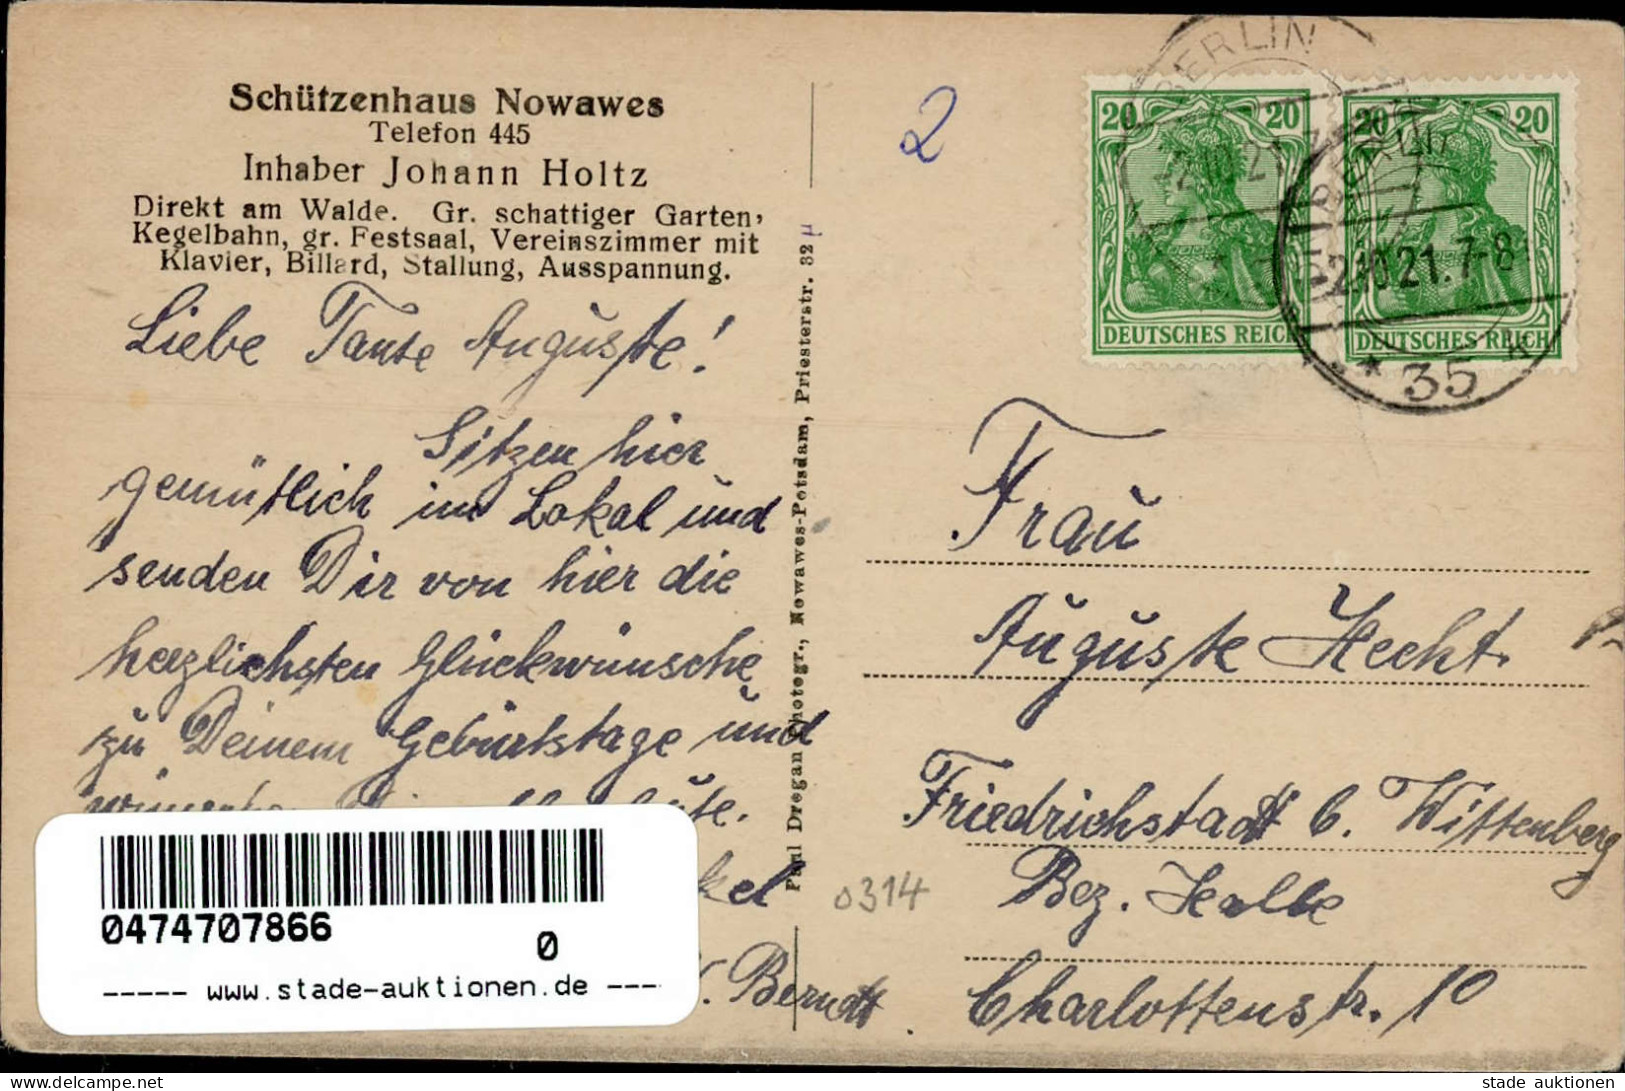 Schützenhaus Nowawes
Telefon 445
Inhaber Johann Holtz
Direkt am Walde. Gr. schattiger Garten,
Kegelbahn, gr. Festsaal, Vereinszimmer mit
Klavier, Billard, Stallung, Ausspannung.
Liebe Tante Auguste!
Sitzen hier
gemütlich im Lokal und
senden Dir von hier die
herzlichsten Glückwünsche
zu Deinem Geburtstage und
wünschen
0474707866
0
----- www.stade-auktionen.de ---
Berndt
Paul Dregan Photogr., Nowawes-Potsdam, Priesterstr. 32
2
20 20
DEUTSCHES REICH
20 20
DEUTSCHES REICH
BERLIN
2.10.21.7-8
* 35 K
Frau
Auguste Hecht.
Friedrichstadt b. Wittenberg
Bez. Halle
Charlottenstr. 10
0314
delcampe.net
stade auktionen